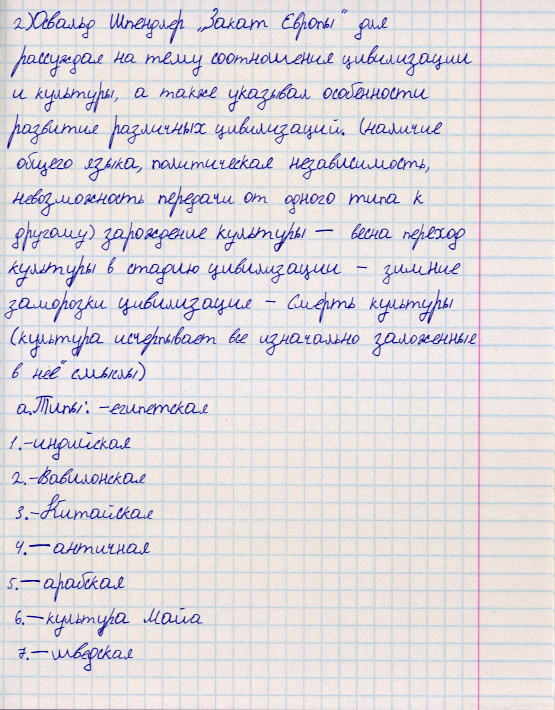 2) Освальд Шпендлер „Закат Европы" для
рассуждал на тему соотношения цивилизации
и культуры, а также указывал особенности
развитие различных цивилизаций. (наличие
общего языка, политическая независимость,
невозможность передачи от одного типа к
другому) зарождение культуры — весна переход
культуры в стадию цивилизации – зимние
заморозки цивилизация – смерть культуры
(культура исчерпывает все изначально заложенные
в неё" смыслы)
а. Типы: -египетская
1.-индийская
2.-Вавилонская
3.-Китайская
4.—античная
5.—арабская
6.—культура Майа
7.—шведская